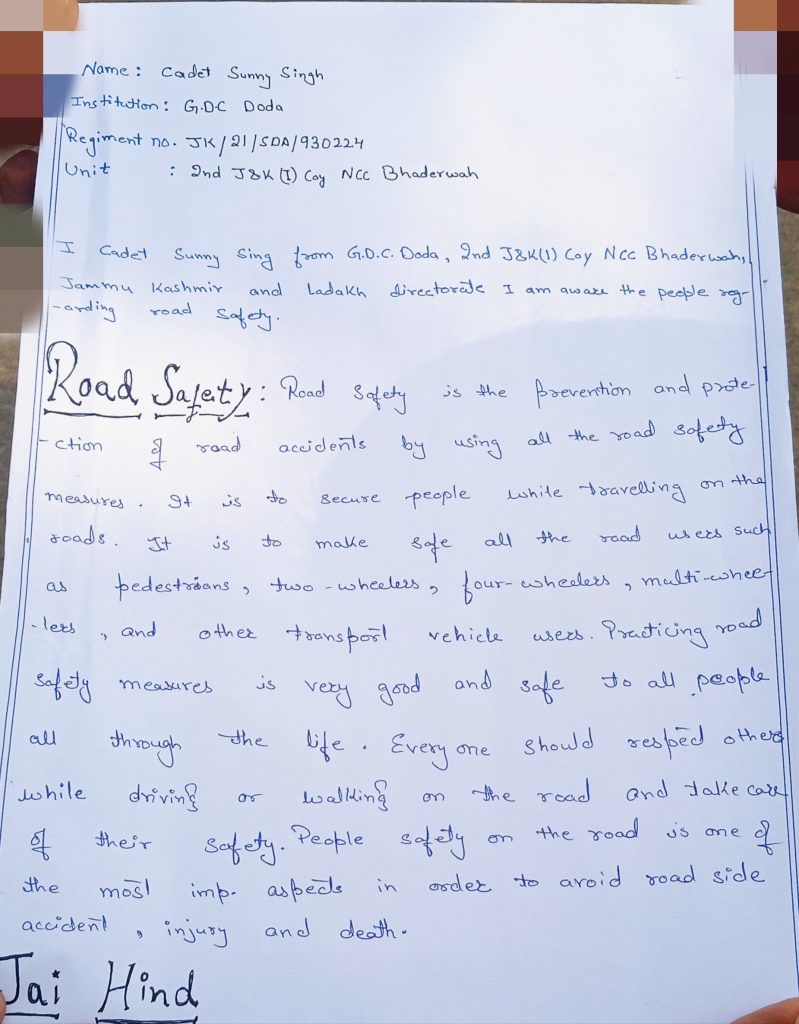 Name : Cadet Sunny Singh
Institution : G.D.C Doda
Regiment no. JK/21/SDA/930224
Unit : 2nd J&K (I) Coy NCC Bhaderwah
I Cadet Sunny Sing from G.D.C. Doda, 2nd J&K(I) Coy NCC Bhaderwah,
Jammu Kashmir and Ladakh directorate I am aware the people reg-
-arding road safety.
Road Safety : Road safety is the prevention and prote-
-ction of road accidents by using all the road safety
measures. It is to secure people while travelling on the
roads. It is to make safe all the road users such
as pedestrians, two-wheelers, four-wheelers, multi-whee-
-lers, and other transport vehicle users. Practicing road
safety measures is very good and safe to all people
all through the life. Every one should respect others
while driving or walking on the road and take care
of their safety. People safety on the road is one of
the most imp. aspects in order to avoid road side
accident, injury and death.
Jai Hind